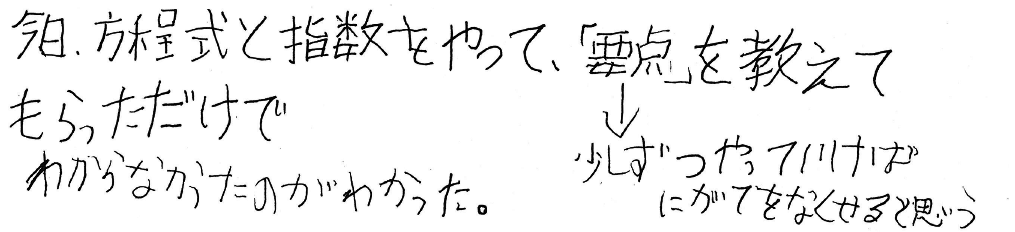 今日、方程式と指数をやって、「要点」を教えて
もらっただけで
わからなかったのがわかった。
↓
少しずつやっていけば
にがてをなくせると思う